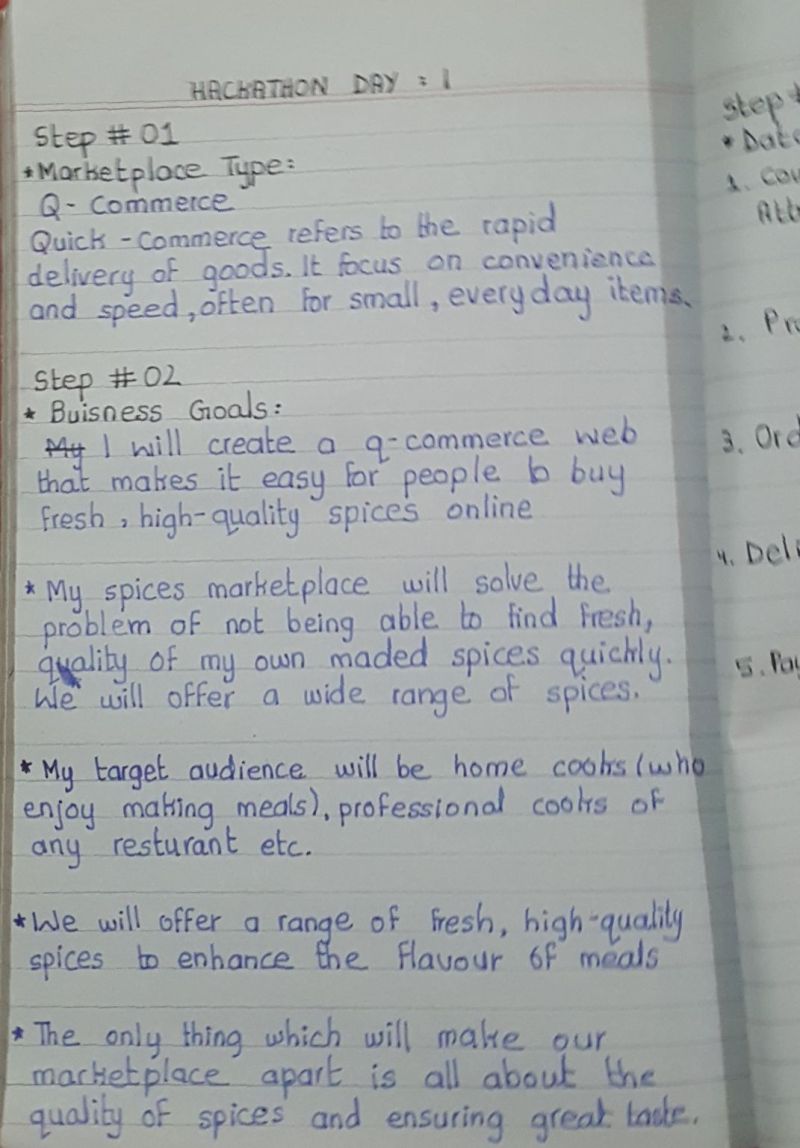 HACKATHON DAY : 1
Step # 01
* Marketplace Type:
Q - Commerce
Quick - Commerce refers to the rapid
delivery of goods. It focus on convenience
and speed, often for small, everyday items.
Step # 02
* Buisness Goals:
My I will create a q-commerce web
that makes it easy for people to buy
fresh, high-quality spices online
* My spices marketplace will solve the
problem of not being able to find fresh,
quality of my own maded spices quickly.
We will offer a wide range of spices.
* My target audience will be home cooks (who
enjoy making meals), professional cooks of
any resturant etc.
* We will offer a range of fresh, high-quality
spices to enhance the flavour of meals
* The only thing which will make our
marketplace apart is all about the
quality of spices and ensuring great taste.
Step #
*
1.
2.
3.
4.
5.